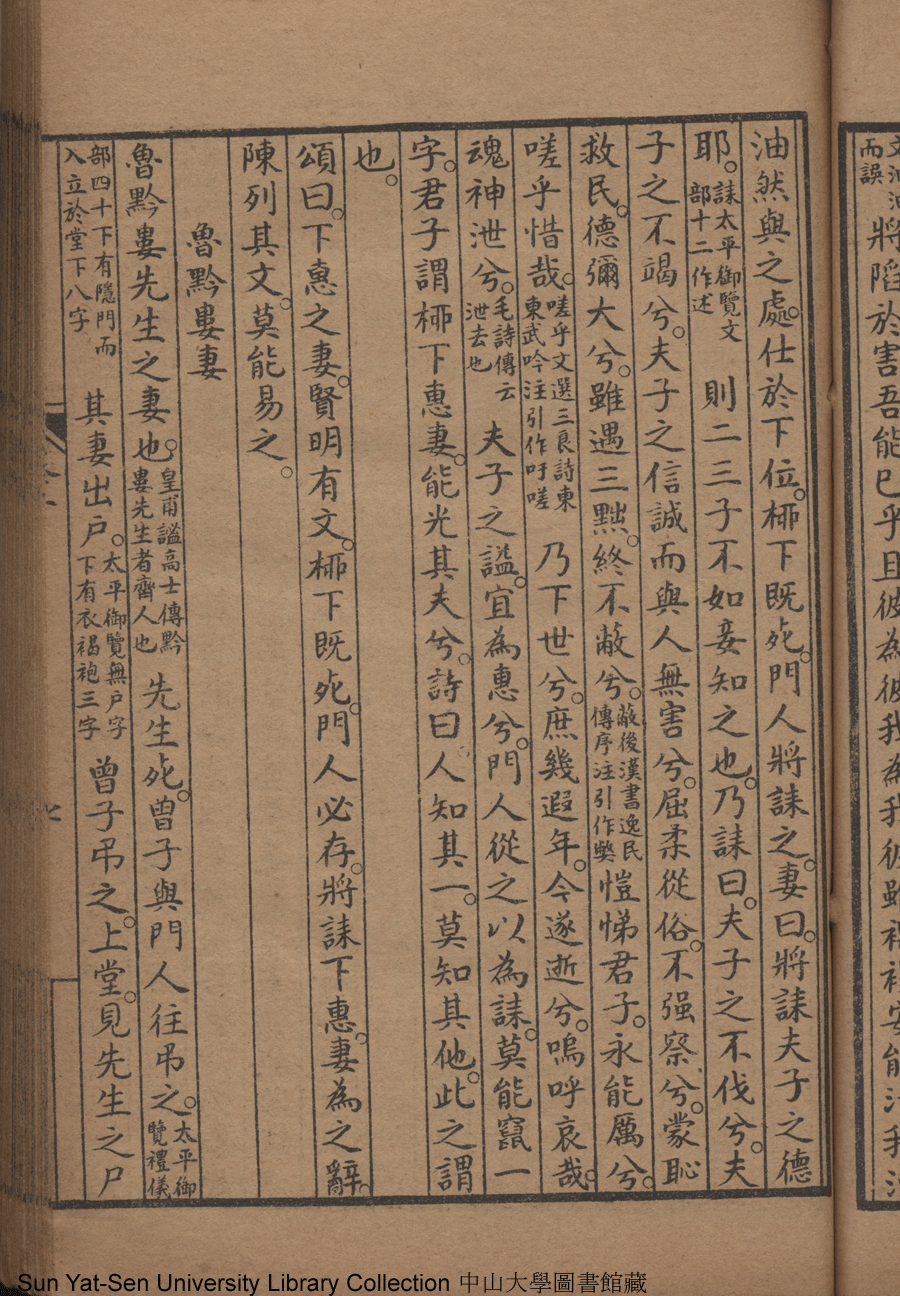 文油油
而誤
將陷於害吾能已乎且彼為彼我為我彼雖裸裎安能汙我油
油然與之處。仕於下位。桺下既死。門人將誄之。妻曰。將誄夫子之德
耶。誄太平御覽文部十二作述則二三子不如妾知之也。乃誄曰。夫子之不伐兮。夫
子之不竭兮。夫子之信誠而與人無害兮。屈柔從俗。不强察兮。蒙恥
救民。德彌大兮。雖遇三黜。終不蔽兮。蔽後漢書逸民傳序注引作獘愷悌君子。永能厲兮。
嗟乎惜哉。嗟乎文選三良詩東東武吟注引作吁嗟乃下世兮。庶幾遐年。今遂逝兮。嗚呼哀哉。
魂神泄兮。毛詩傳云泄去也夫子之謚。宜為惠兮。門人從之以為誄。莫能竄一
字。君子謂桺下惠妻。能光其夫兮。詩曰人知其一。莫知其他。此之謂
也。
頌曰。下惠之妻。賢明有文。桺下既死。門人必存。將誄下惠。妻為之辭。
陳列其文。莫能易之。
魯黔婁妻
魯黔婁先生之妻也。皇甫謐高士傳黔婁先生者齊人也先生死。曾子與門人往弔之。太平御覽禮儀
部四十下有隱門而入立於堂下八字其妻出戶。太平御覽無户字下有衣褐袍三字曾子弔之。上堂。見先生之尸
Sun Yat-Sen University Library Collection 中山大學圖書館藏